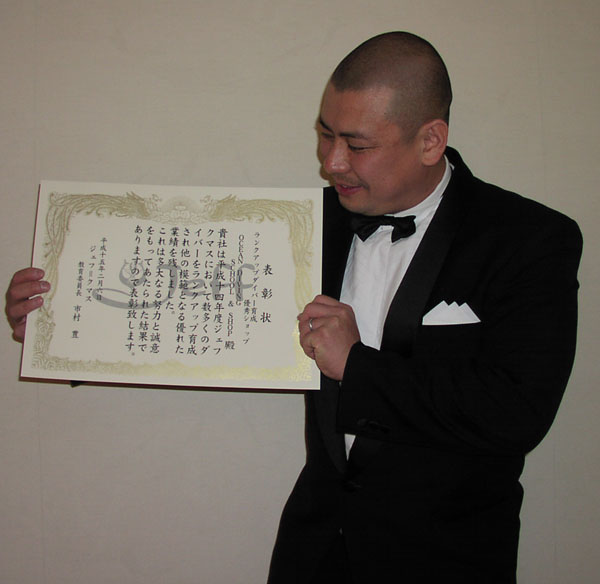 表彰状
ランクアップダイバー育成
優秀ショップ
OCEAN DIVING
SCHOOL & SHOP 殿
貴社は平成十四年度ジェフ
クマスにおいて数多くのダ
イバーをランクアップ育成
され他の模範となる優れた
業績を残しました。
これは多大なる努力と誠意
をもってあたられた結果で
ありますので表彰致します。
平成十五年二月六日
ジェフ・クマス
教育委員長 市村 豊